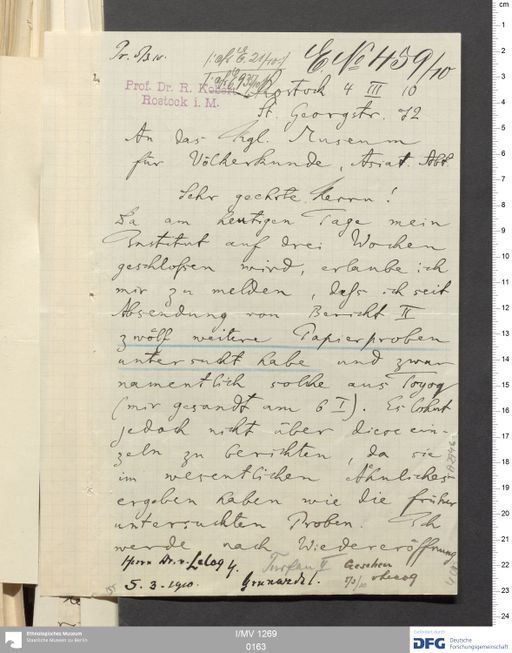 E No 459/10
Prof. Dr. R. Kobert
Rostock i. M.
Rostock 4 III 10
St. Georgstr. 72
An das Kgl. Museum
für Völkerkunde, Asiat. Abt.
Sehr geehrte Herrn!
Da am heutigen Tage mein
Institut auf drei Wochen
geschloßen wird, erlaube ich
mir zu melden, daß ich seit
Absendung von Bericht II
zwölf weitere Papierproben
untersucht habe und zwar
namentlich solche aus Toyoq
(mir gesandt am 6 I). Es lohnt
jedoch nicht über diese ein-
zeln zu berichten, da sie
im wesentlichen Ähnliches
ergeben haben wie die früher
untersuchten Proben. Ich
werde nach Wiedereröffnung
Herrn Dr. v. Lecoq
5.3.1910. Grünwedel.
Turfan
Gesehen
Ethnologisches Museum
Staatliche Museen zu Berlin
I/MV 1269
0163
Gefördert durch
DFG Deutsche
Forschungsgemeinschaft
cm
1
2
3
4
5
6
7
8
9
10
11
12
13
14
15
16
17
18
19
20
21
22
23
24